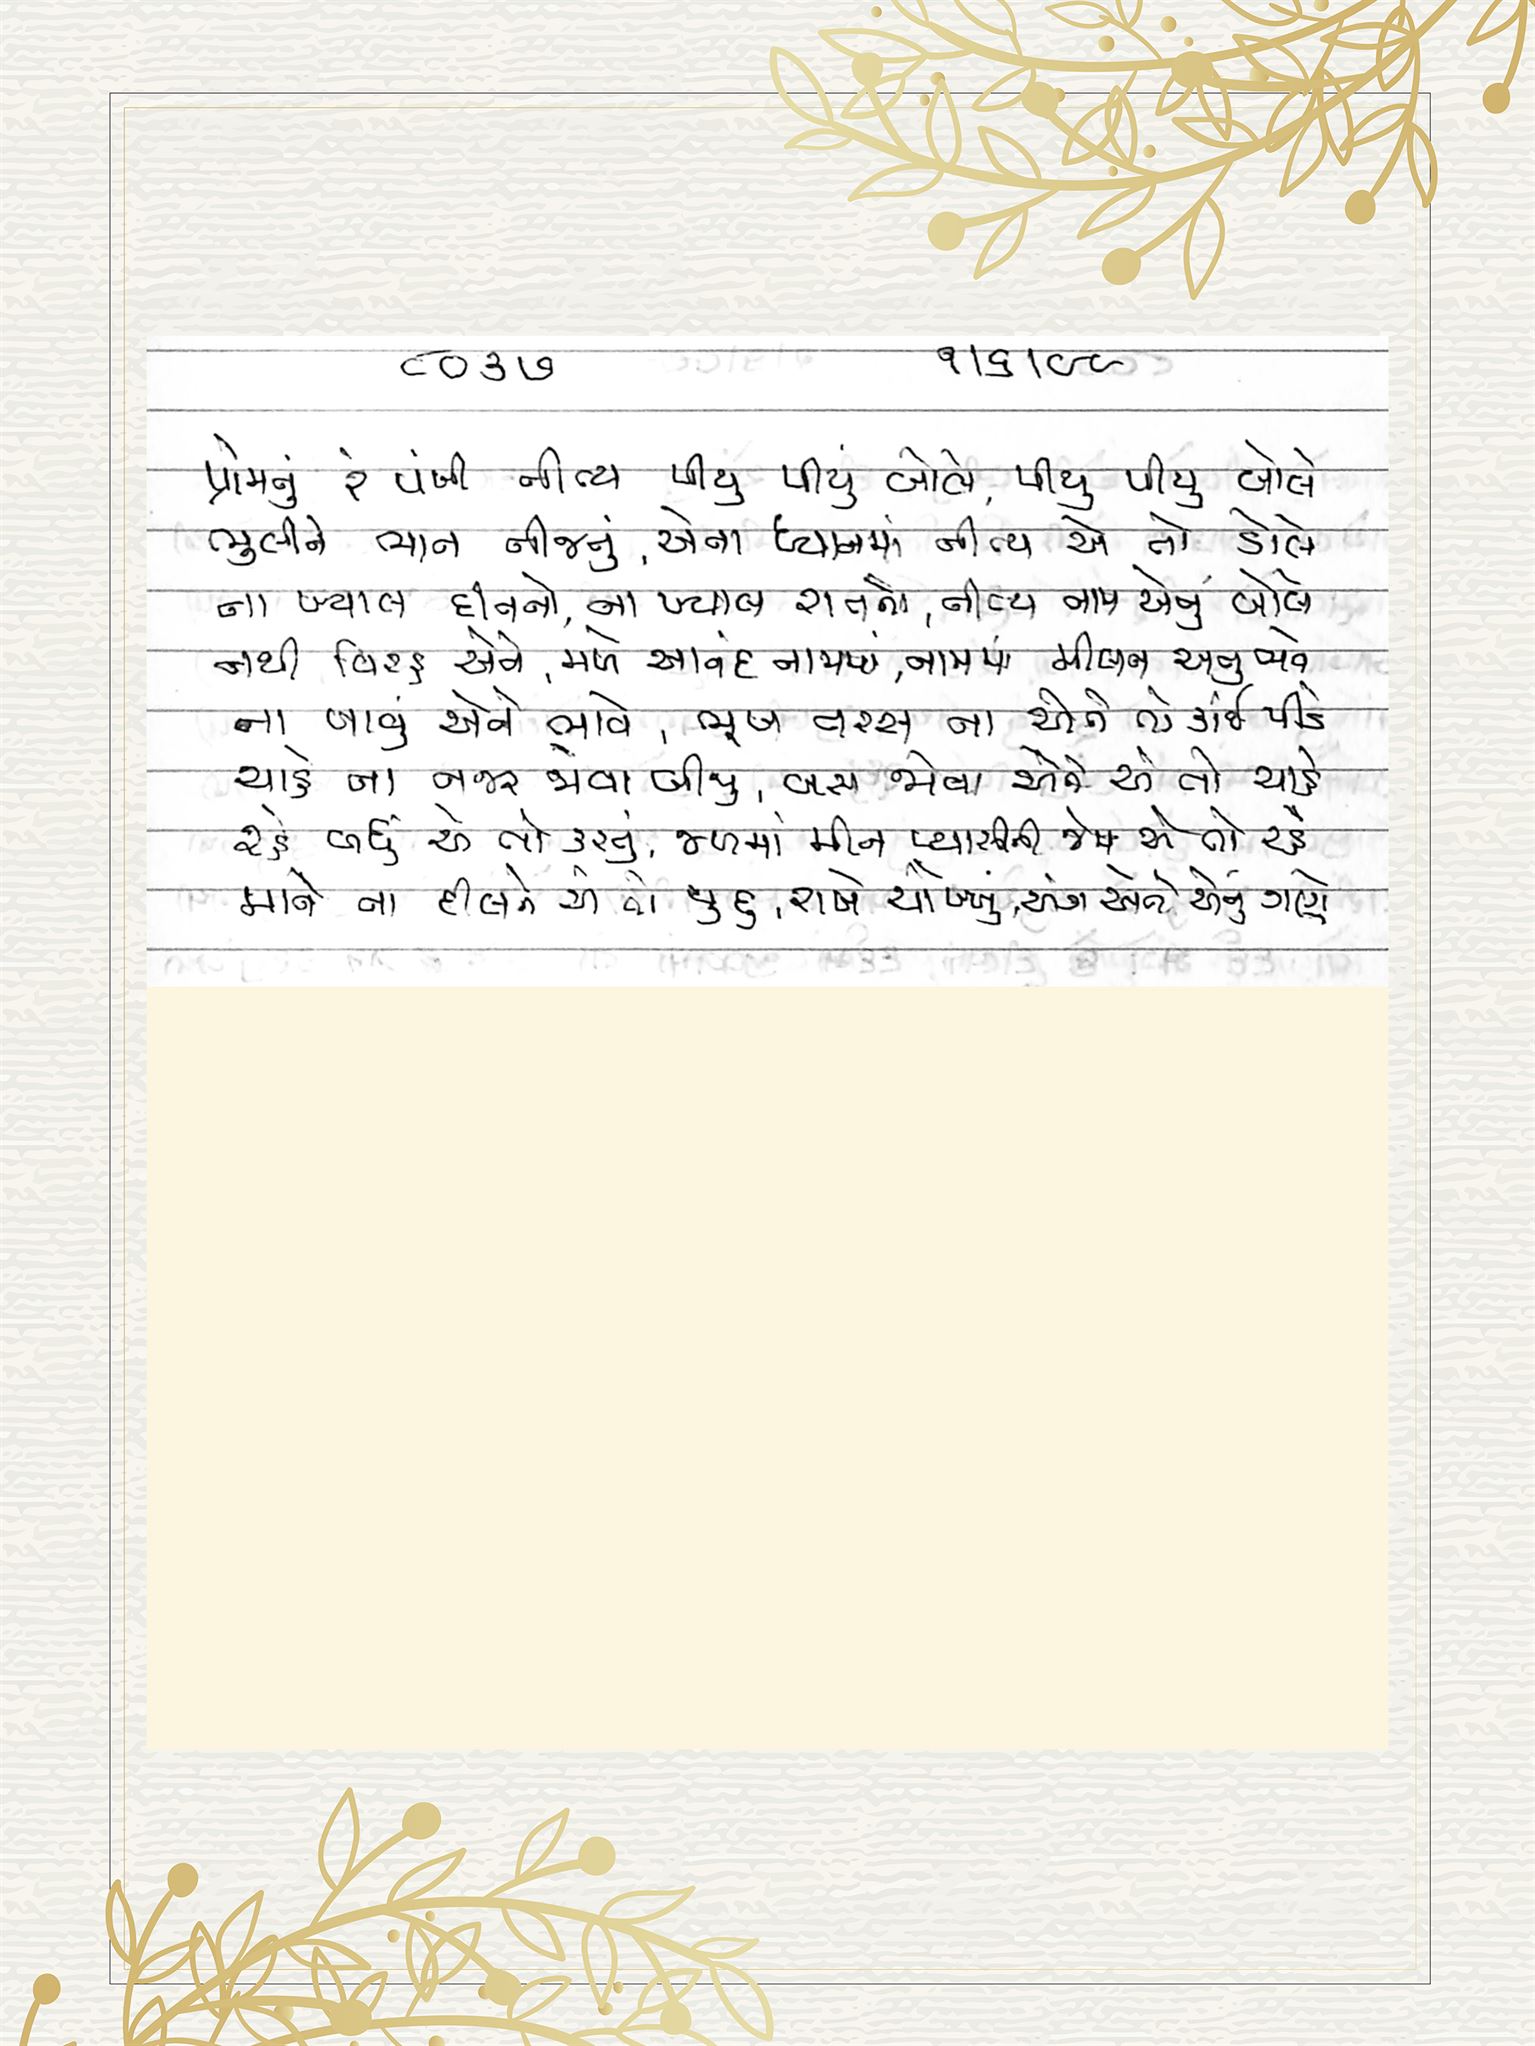 ૮૦૩૭ ૧/૬/૯૯
પ્રેમનું રે પંખી નીત્ય પીયુ પીયું બોલે, પીયુ પીયુ બોલે
ભુલીને ભાન નીજનું, એના ધ્યાનમાં નીત્ય એ તો ડોલે
ના ખ્યાલ દીનનો, ના ખ્યાલ રાતનો, નીત્ય નામ એનું બોલે
નથી વિરહ એને, મળે આનંદ નામમાં, નામમાં મીલન અનુભવે
ના ખાવું એને ભાવે, ભૂખ તરસ ના એને તો કાંઈ પીડે
ચાહે ના નજર જોવા બીજુ, બસ જોવા એને એ તો ચાહે
રહે બધું એ તો કરતું, જળમાં મીન પ્યાસીની જેમ એ તો રહે
માને ના દીલને એ તો જુદુ, રાખે ચોખ્ખું, અંગ એને એનું ગણે